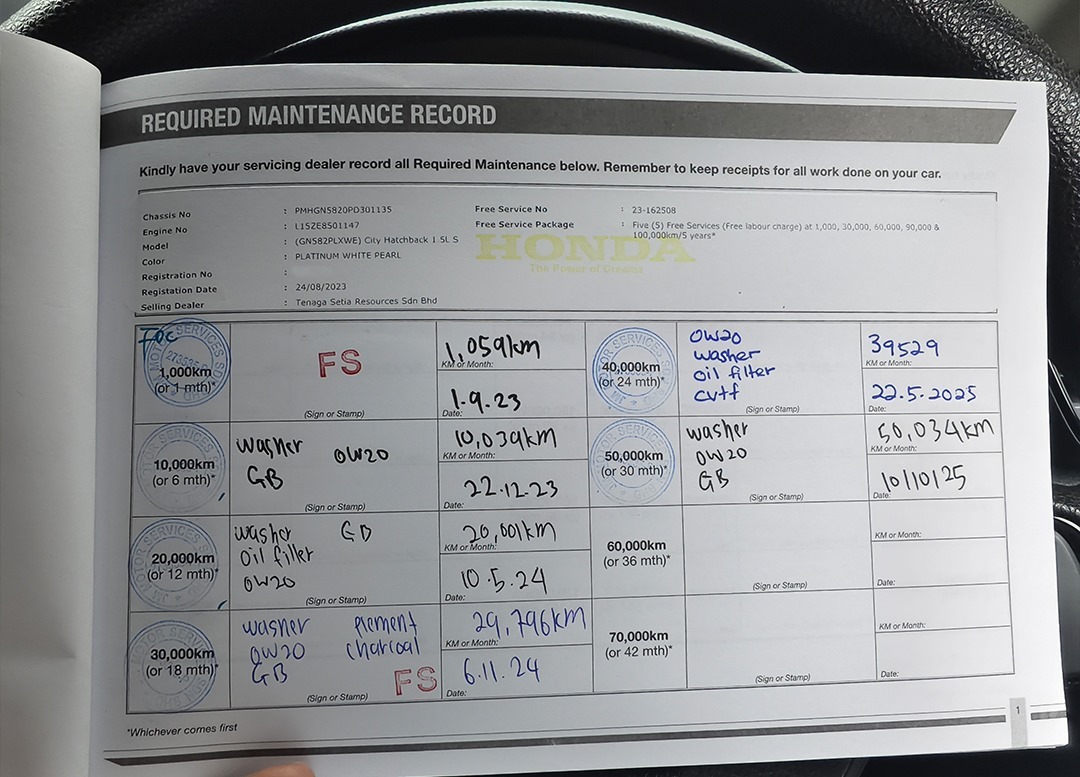 REQUIRED MAINTENANCE RECORD
Kindly have your servicing dealer record all Required Maintenance below. Remember to keep receipts for all work done on your car.
Chassis No : PMHGN5820PD301135
Engine No : L15ZE8501147
Model : (GN582PLXWE) City Hatchback 1.5L S
Color : PLATINUM WHITE PEARL
Registration No :
Registation Date : 24/08/2023
Selling Dealer : Tenaga Setia Resources Sdn Bhd
Free Service No : 23-162508
Free Service Package : Five (5) Free Services (Free labour charge) at 1,000, 30,000, 60,000, 90,000 &
100,000km/5 years*
HONDA
The Power of Dreams
FOC
MOTOR SERVICES
1,000km
(or 1 mth)*
FS
(Sign or Stamp)
1,059km
KM or Month:
1.9.23
Date:
MOTOR SERVICES
10,000km
(or 6 mth)*
washer 0W20
GB
(Sign or Stamp)
10,039km
KM or Month:
22.12.23
Date:
MOTOR SERVICES
20,000km
(or 12 mth)*
washer GB
oil filter
0W20
(Sign or Stamp)
20,001km
KM or Month:
10.5.24
Date:
MOTOR SERVICES
30,000km
(or 18 mth)*
washer element
0W20 charcoal
GB
FS
(Sign or Stamp)
29,796km
KM or Month:
6.11.24
Date:
MOTOR SERVICES
40,000km
(or 24 mth)*
0W20
washer
oil filter
cvtf
(Sign or Stamp)
39529
KM or Month:
22.5.2025
Date:
MOTOR SERVICES
50,000km
(or 30 mth)*
washer
0W20
GB
(Sign or Stamp)
50,034km
KM or Month:
10/10/25
Date:
60,000km
(or 36 mth)*
(Sign or Stamp)
KM or Month:
Date:
70,000km
(or 42 mth)*
(Sign or Stamp)
KM or Month:
Date:
*Whichever comes first
1